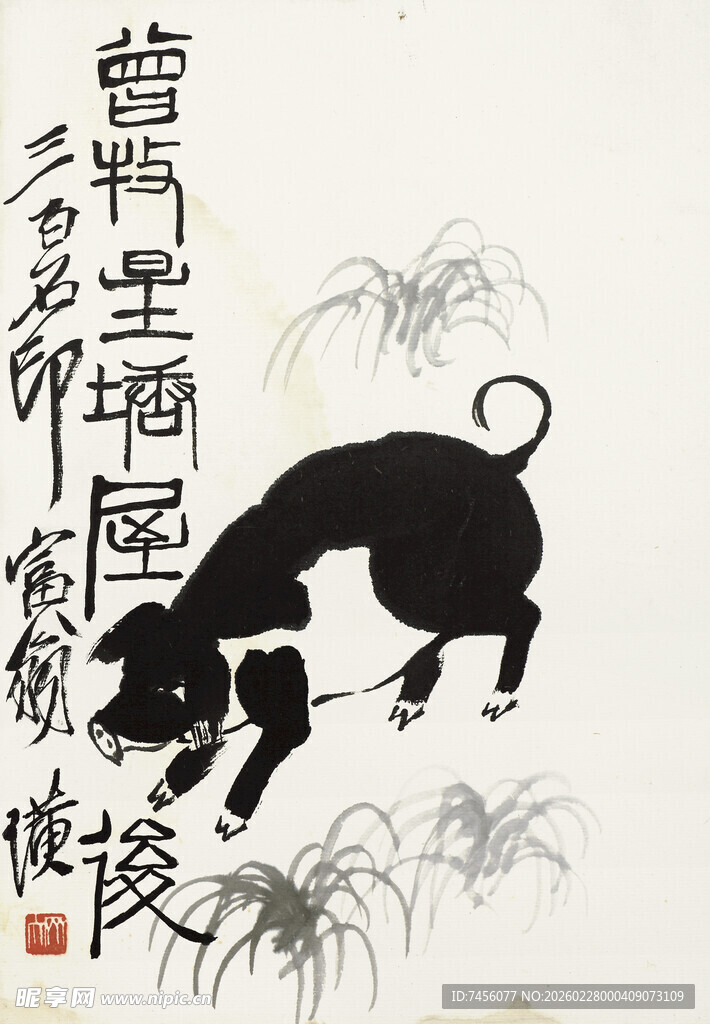 曾牧星塘屋後
三百石印富翁璜
昵享网 www.nipic.cn
ID:7456077 NO:20260228000409073109